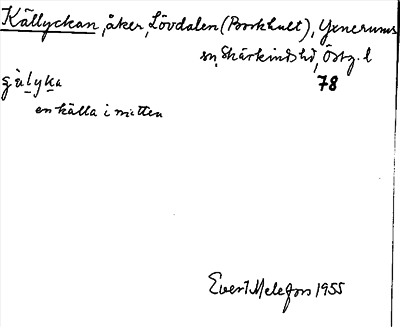 Källyckan, åker, Lövdalen (Borkhult), Yxnerums
sn, Skärkinds hd, Östg. l
78
en källa i mitten
Evert Melefors 1955